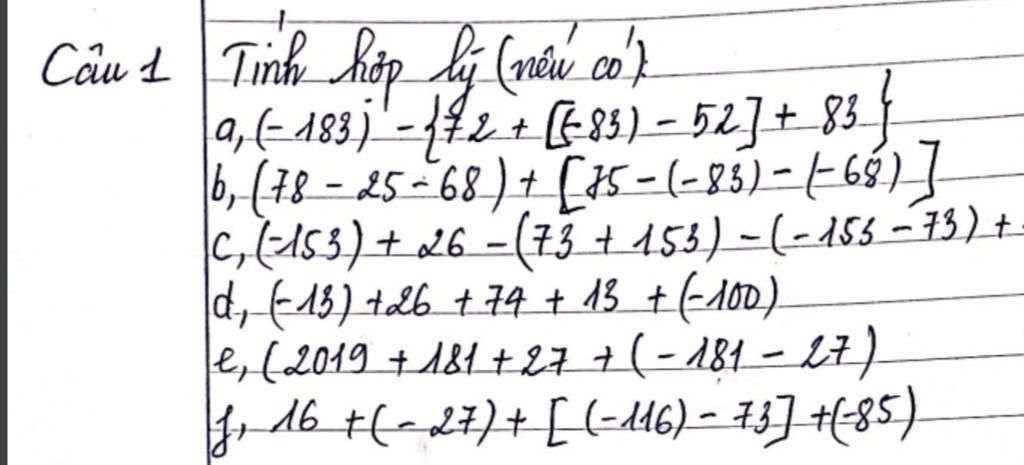 Câu 1 Tính hợp lý (nếu có):
a, (-183) - {72 + [(-83) - 52] + 83}
b, (78 - 25 - 68) + [75 - (-83) - (-68)]
c, (-153) + 26 - (73 + 153) - (-153 - 73) +
d, (-13) + 26 + 74 + 13 + (-100)
e, (2019 + 181 + 27 + (-181 - 27)
f, 16 + (-27) + [(-116) - 73] + (-85)